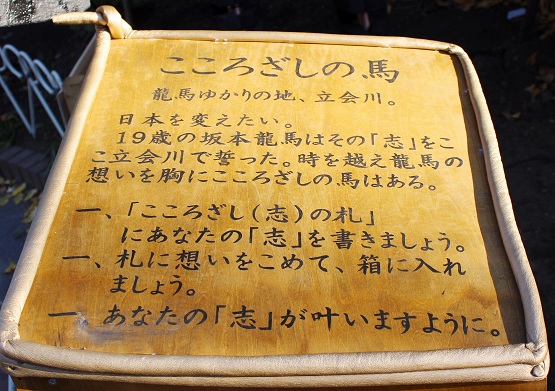 こころざしの馬
龍馬ゆかりの地、立会川。
日本を変えたい。
19歳の坂本龍馬はその「志」をこ
こ立会川で誓った。時を越え龍馬の
想いを胸にこころざしの馬はある。
一、「こころざし(志)の札」
にあなたの「志」を書きましょう。
一、札に想いをこめて、箱に入れ
ましょう。
一、あなたの「志」が叶いますように。